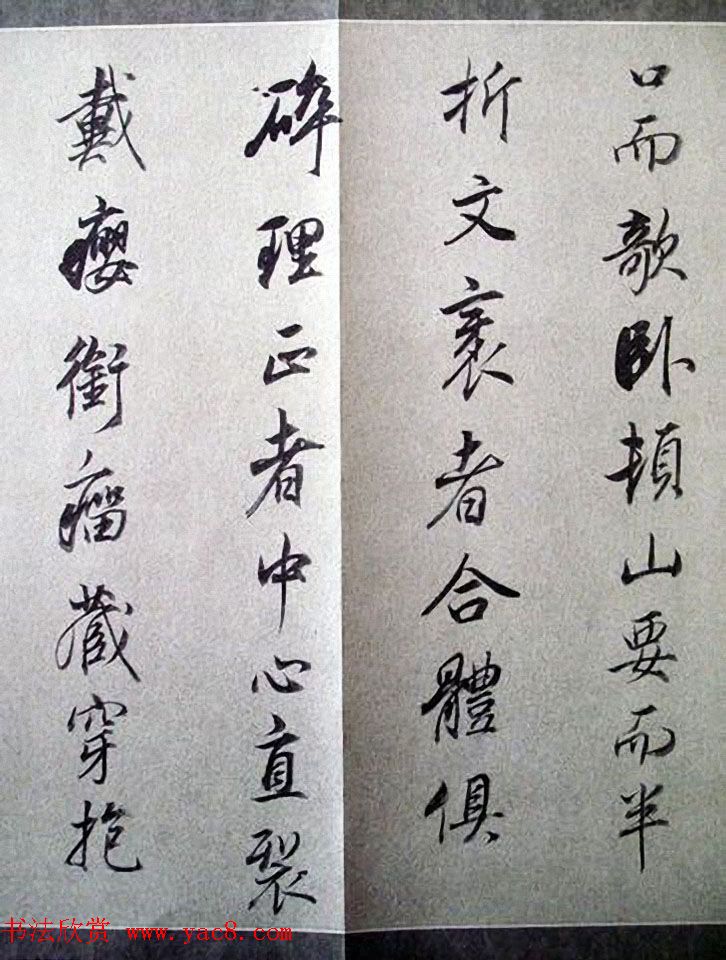 口而欹卧頓山要而半
折文袤者合體俱
碎理正者中心直裂
戴癭銜瘤藏穿抱
书法欣赏 www.yac8.com